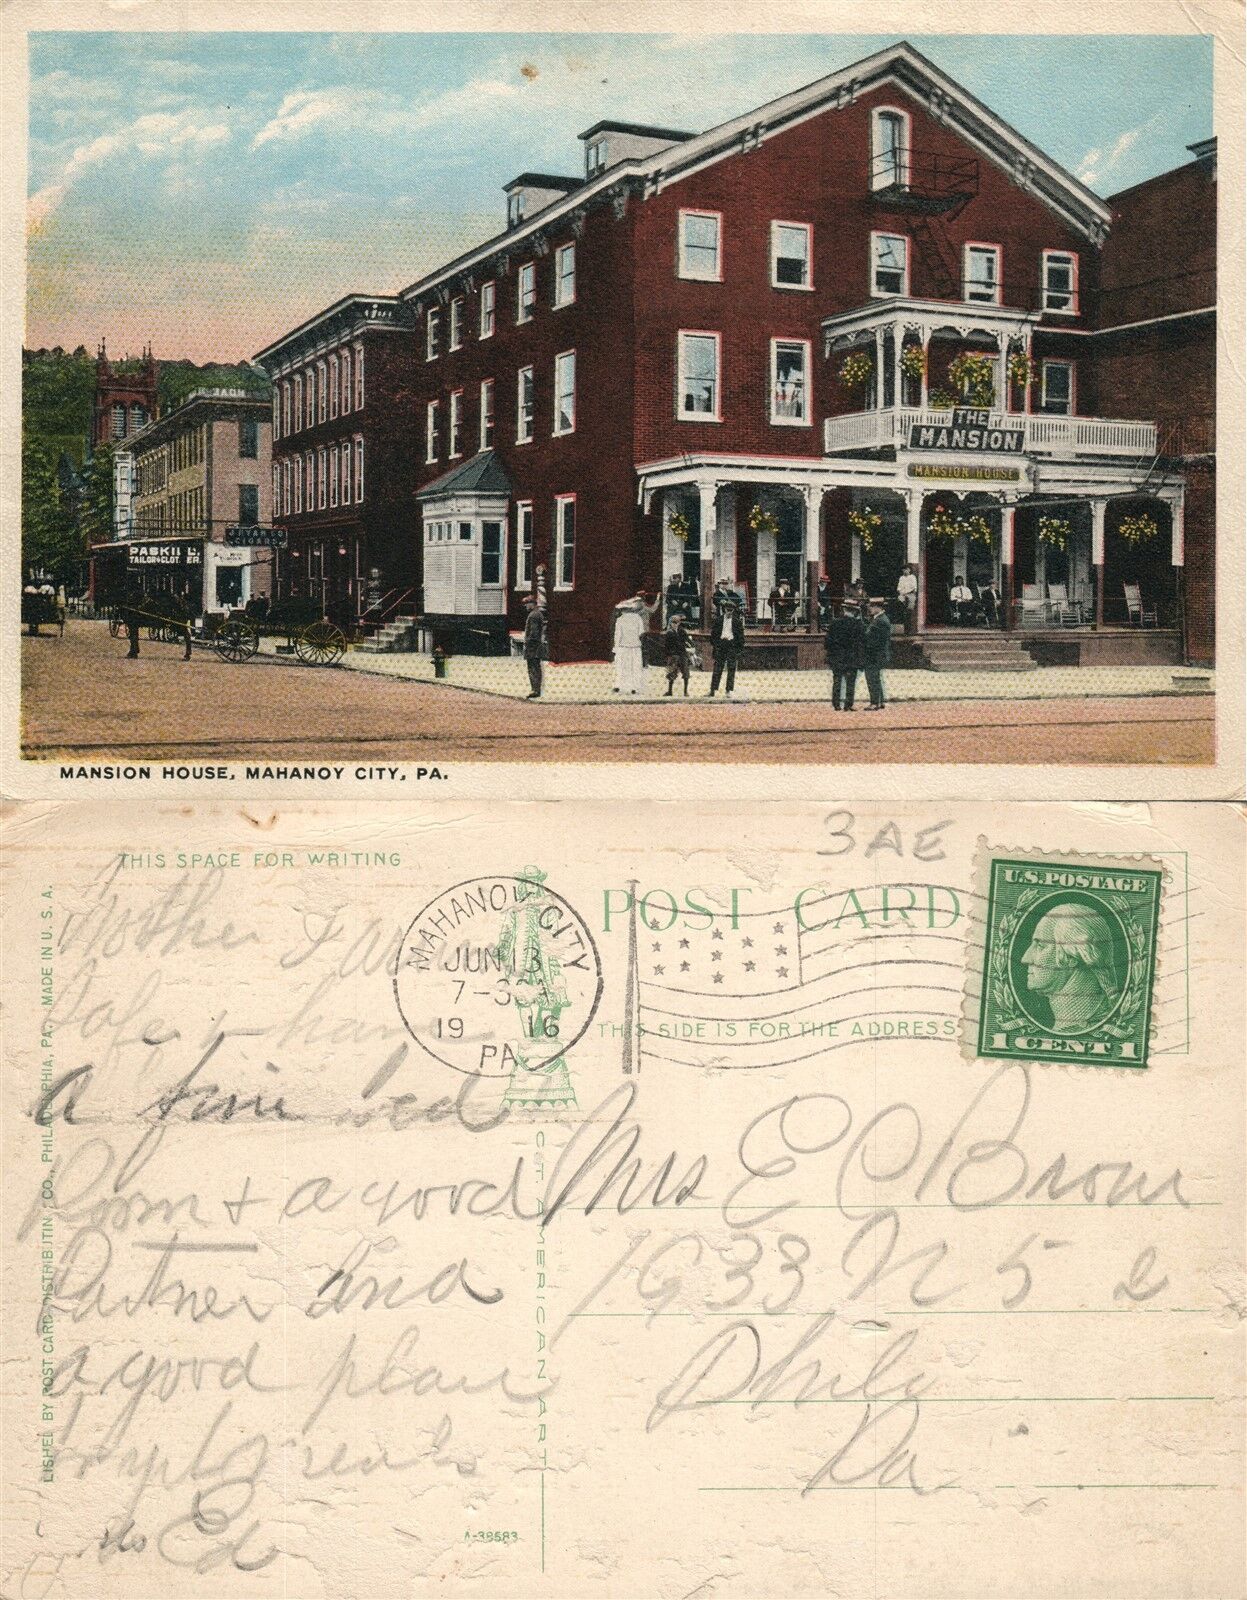 THE
MANSION
MANSION HOUSE
TAILOR & CLOTHIER
MANSION HOUSE, MAHANOY CITY, PA.
3AE
THIS SPACE FOR WRITING
POST CARD
U.S. POSTAGE
1 CENT 1
MAHANOY CITY
JUN 13
7-30A
19 16
PA
THIS SIDE IS FOR THE ADDRESS
LISHED BY POST CARD DISTRIBUTIN' CO., PHILADELPHIA, PA. MADE IN U. S. A.
C. T. AMERICAN ART
Mother I
Safe + have
a fine bed
Room + a good
Partner and
a good place
to
Ed
Mrs E C Brown
1933 N 5
Phila
Pa
A-38583